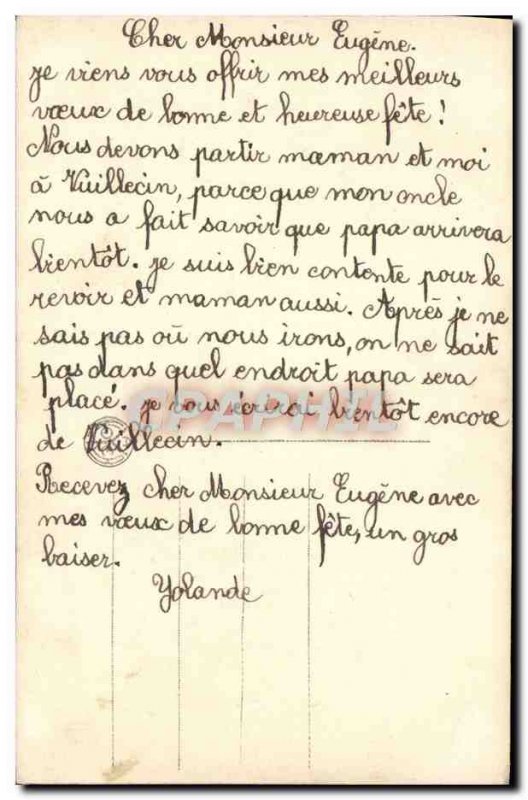 Cher Monsieur Eugène.
je viens vous offrir mes meilleurs
vœux de bonne et heureuse fête !
Nous devons partir maman et moi
à Vuillecin, parce que mon oncle
nous a fait savoir que papa arrivera
bientôt. je suis bien contente pour le
revoir et maman aussi. Après je ne
sais pas où nous irons, on ne sait
pas dans quel endroit papa sera
placé. je vous écrirai bientôt encore
de Vuillecin.
Recevez cher Monsieur Eugène avec
mes vœux de bonne fête, un gros
baiser.
Yolande
CPAPHIL